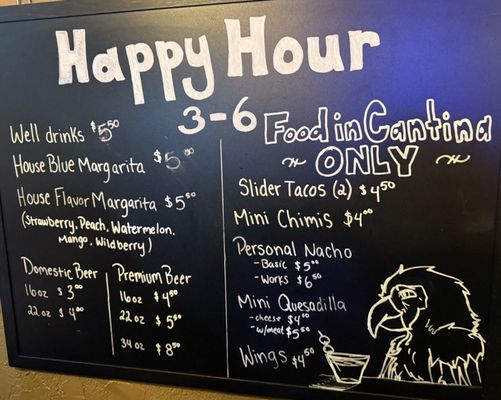 Happy Hour
3-6
Well drinks $5⁵⁰
House Blue Margarita $5⁰⁰
House Flavor Margarita $5⁵⁰
(Strawberry, Peach, Watermelon,
Mango, Wildberry)
Domestic Beer
16oz $3⁰⁰
22oz $4⁰⁰
Premium Beer
16oz $4⁵⁰
22oz $5⁵⁰
34oz $8⁵⁰
Food in Cantina
~ ONLY ~
Slider Tacos (2) $4⁵⁰
Mini Chimis $4⁰⁰
Personal Nacho
- Basic $5⁰⁰
- Works $6⁵⁰
Mini Quesadilla
- cheese $4⁰⁰
- w/meat $5⁵⁰
Wings $4⁵⁰